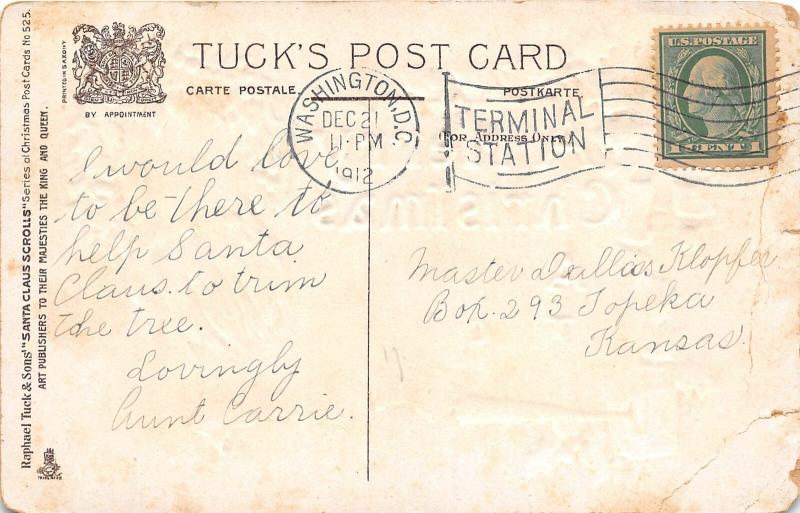 TUCK'S POST CARD
CARTE POSTALE.
POSTKARTE
(FOR ADDRESS ONLY.)
PRINTED IN SAXONY
BY APPOINTMENT
Raphael Tuck & Sons' "SANTA CLAUS SCROLLS" Series of Christmas Post Cards No 525.
ART PUBLISHERS TO THEIR MAJESTIES THE KING AND QUEEN.
WASHINGTON, D.C.
DEC 21
11-PM
1912
TERMINAL
STATION
U.S. POSTAGE
1 CENT 1
I would love
to be there to
help Santa
Claus to trim
the tree.
Lovingly
Aunt Carrie.
Master Dallas Klopfer
Box. 293 Topeka
Kansas.
A Christmas